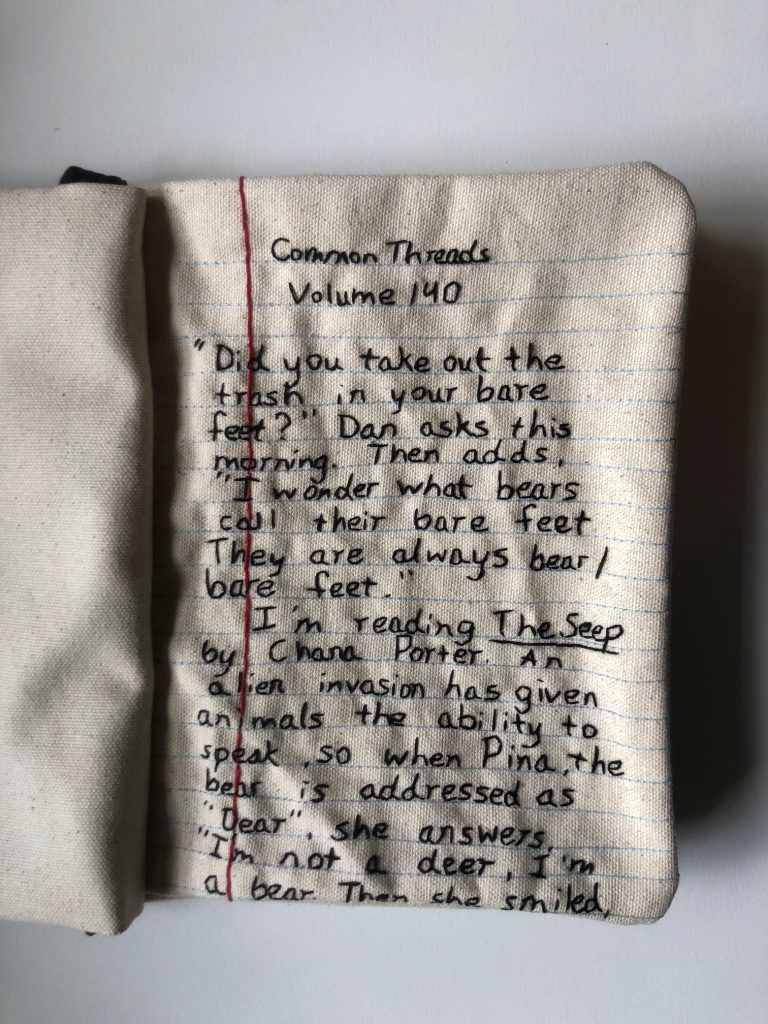 Common Threads
Volume 140
"Did you take out the
trash in your bare
feet?" Dan asks this
morning. Then adds,
"I wonder what bears
call their bare feet
They are always bear/
bare feet."
I'm reading The Seep
by Chana Porter. An
alien invasion has given
animals the ability to
speak, so when Pina, the
bear is addressed as
"Dear", she answers,
"I'm not a deer, I'm
a bear. Then she smiled,